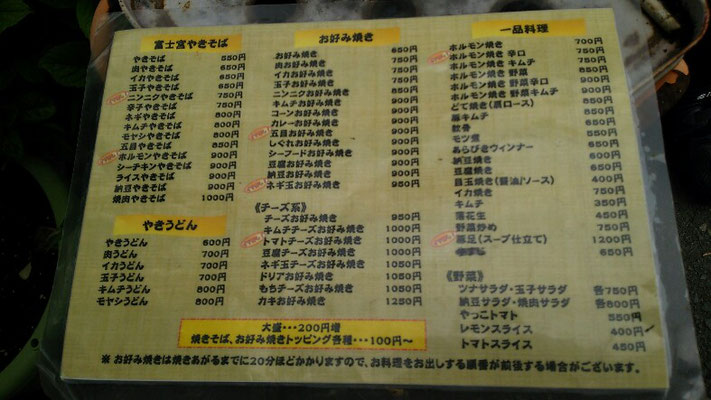 富士宮やきそば
やきそば 550円
肉やきそば 650円
イカやきそば 650円
玉子やきそば 650円
ニンニクやきそば 750円
辛子やきそば 750円
ネギやきそば 800円
キムチやきそば 800円
モヤシやきそば 800円
五目やきそば 850円
ホルモンやきそば 900円
シーチキンやきそば 900円
ライスやきそば 900円
納豆やきそば 900円
焼肉やきそば 1000円
やきうどん
やきうどん 600円
肉うどん 700円
イカうどん 700円
玉子うどん 700円
キムチうどん 800円
モヤシうどん 800円
お好み焼き
お好み焼き 650円
肉お好み焼き 750円
イカお好み焼き 750円
玉子お好み焼き 750円
ニンニクお好み焼き 850円
キムチお好み焼き 900円
コーンお好み焼き 900円
カレーお好み焼き 900円
五目お好み焼き 900円
しぐれお好み焼き 900円
シーフードお好み焼き 900円
豆腐お好み焼き 900円
納豆お好み焼き 950円
ネギ玉お好み焼き 950円
《チーズ系》
チーズお好み焼き 950円
キムチチーズお好み焼き 1000円
トマトチーズお好み焼き 1000円
豆腐チーズお好み焼き 1000円
ネギ玉チーズお好み焼き 1050円
ドリアお好み焼き 1050円
もちチーズお好み焼き 1050円
カキお好み焼き 1250円
一品料理
ホルモン焼き 700円
ホルモン焼き 辛口 750円
ホルモン焼き キムチ 750円
ホルモン焼き 野菜 850円
ホルモン焼き 野菜辛口 900円
ホルモン焼き 野菜キムチ 900円
どて焼き(肩ロース) 850円
豚キムチ 850円
軟骨 650円
モツ煮 550円
あらびきウィンナー 650円
納豆焼き 600円
豆腐焼き 650円
目玉焼き(醤油/ソース) 400円
イカ焼き 750円
キムチ 350円
落花生 450円
野菜炒め 750円
豚足(スープ仕立て) 1200円
650円
《野菜》
ツナサラダ・玉子サラダ 各750円
納豆サラダ・焼肉サラダ 各800円
やっこトマト 550円
レモンスライス 400円
トマトスライス 450円
大盛・・・200円増
焼きそば、お好み焼きトッピング各種・・・100円～
※ お好み焼きは焼きあがるまでに20分ほどかかりますので、お料理をお出しする順番が前後する場合がございます。